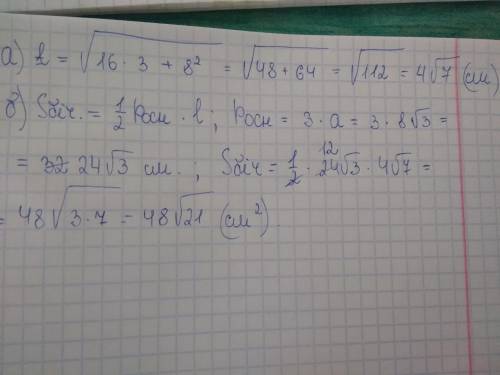 а) l = √(16 · 3 + 8²) = √(48 + 64) = √112 = 4√7 (см)
б) Sбіч. = 1/2 Pосн · l ; Pосн = 3 · a = 3 · 8√3 =
= 24√3 см. ; Sбіч = 1/2 · 24√3 · 4√7 = 12
= 48√(3 · 7) = 48√21 (см²).